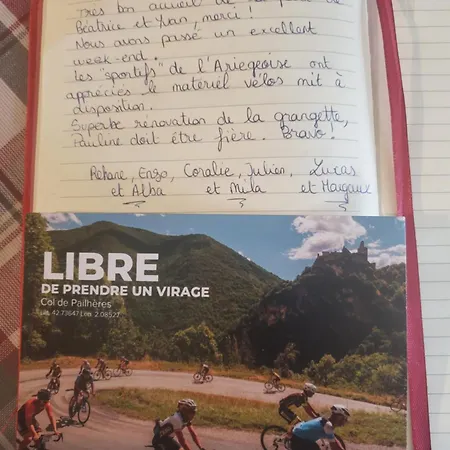 Très bon accueil de la part de
Béatrice et Yvan, merci !
Nous avons passé un excellent
week-end.
Les "sportifs" de l'Ariégeoise ont
appréciés le matériel vélos mit à
disposition.
Superbe rénovation de la grangette,
Pauline doit être fière. Bravo !
Rehane, Enzo, Coralie, Julien, Lucas
et Alba et Mila et Margaux
LIBRE
DE PRENDRE UN VIRAGE
Col de Pailhères
Lat. 42.73647 Len. 2.08527